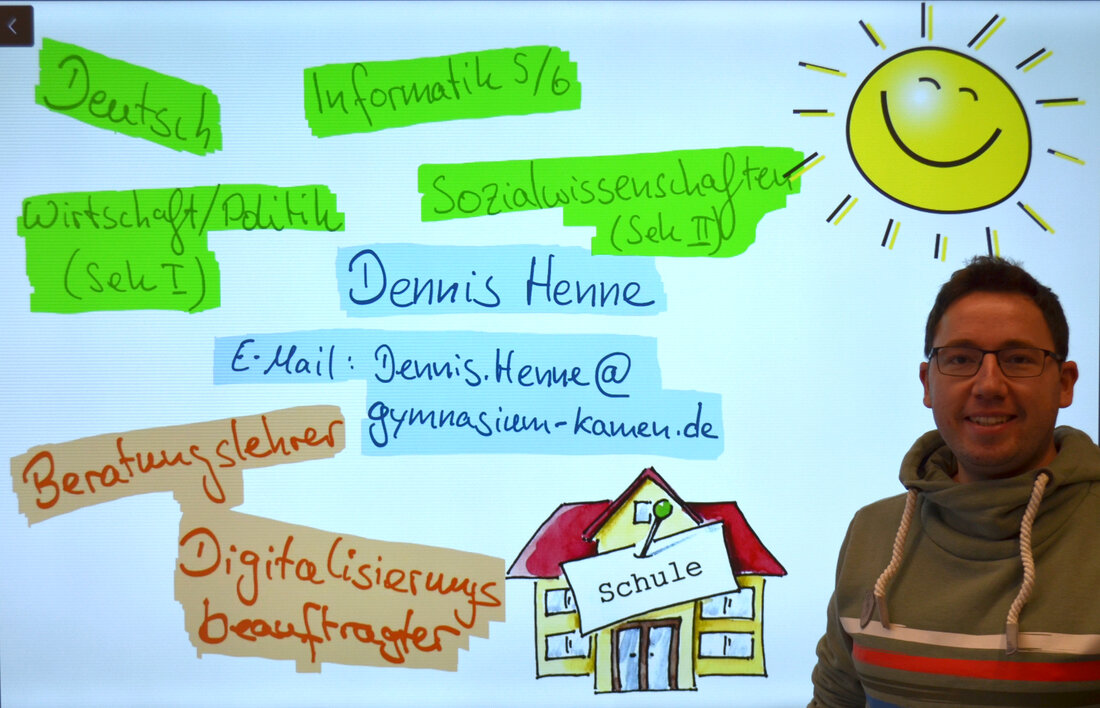 Deutsch
Informatik 5/6
Wirtschaft/Politik
(Sek I)
Sozialwissenschaften
(Sek II)
Dennis Henne
E-Mail: Dennis.Henne@
gymnasium-kamen.de
Beratungslehrer
Digitalisierungs
beauftragter
schule